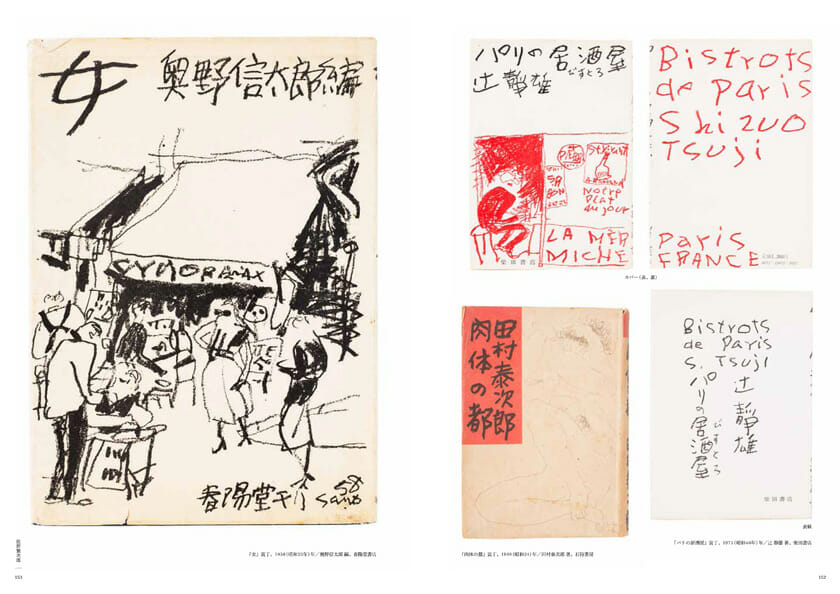 女
奥野信太郎編
CYNORAMAX
TE
春陽堂刊
58
Sano
佐野繁次郎
153
『女』装丁、1958(昭和33年)年／奥野信太郎 編、春陽堂書店
パリの居酒屋
びすとろ
辻 靜雄
NOTRE
PLAT
du jour
LA MÈR
MICHE
柴田書店
Bistrots
de Paris
Shizuo
TSUJI
Paris
FRANCE
カバー（表、裏）
田村泰次郎
肉体の都
Bistrots
de Paris
S. TSUJI
辻 靜雄
パリの居酒屋
びすとろ
柴田書店
表紙
『肉体の都』装丁、1949(昭和24)年／田村泰次郎 著、
『パリの居酒屋』装丁、1973(昭和48年)年／辻 靜雄 著、柴田書店
152